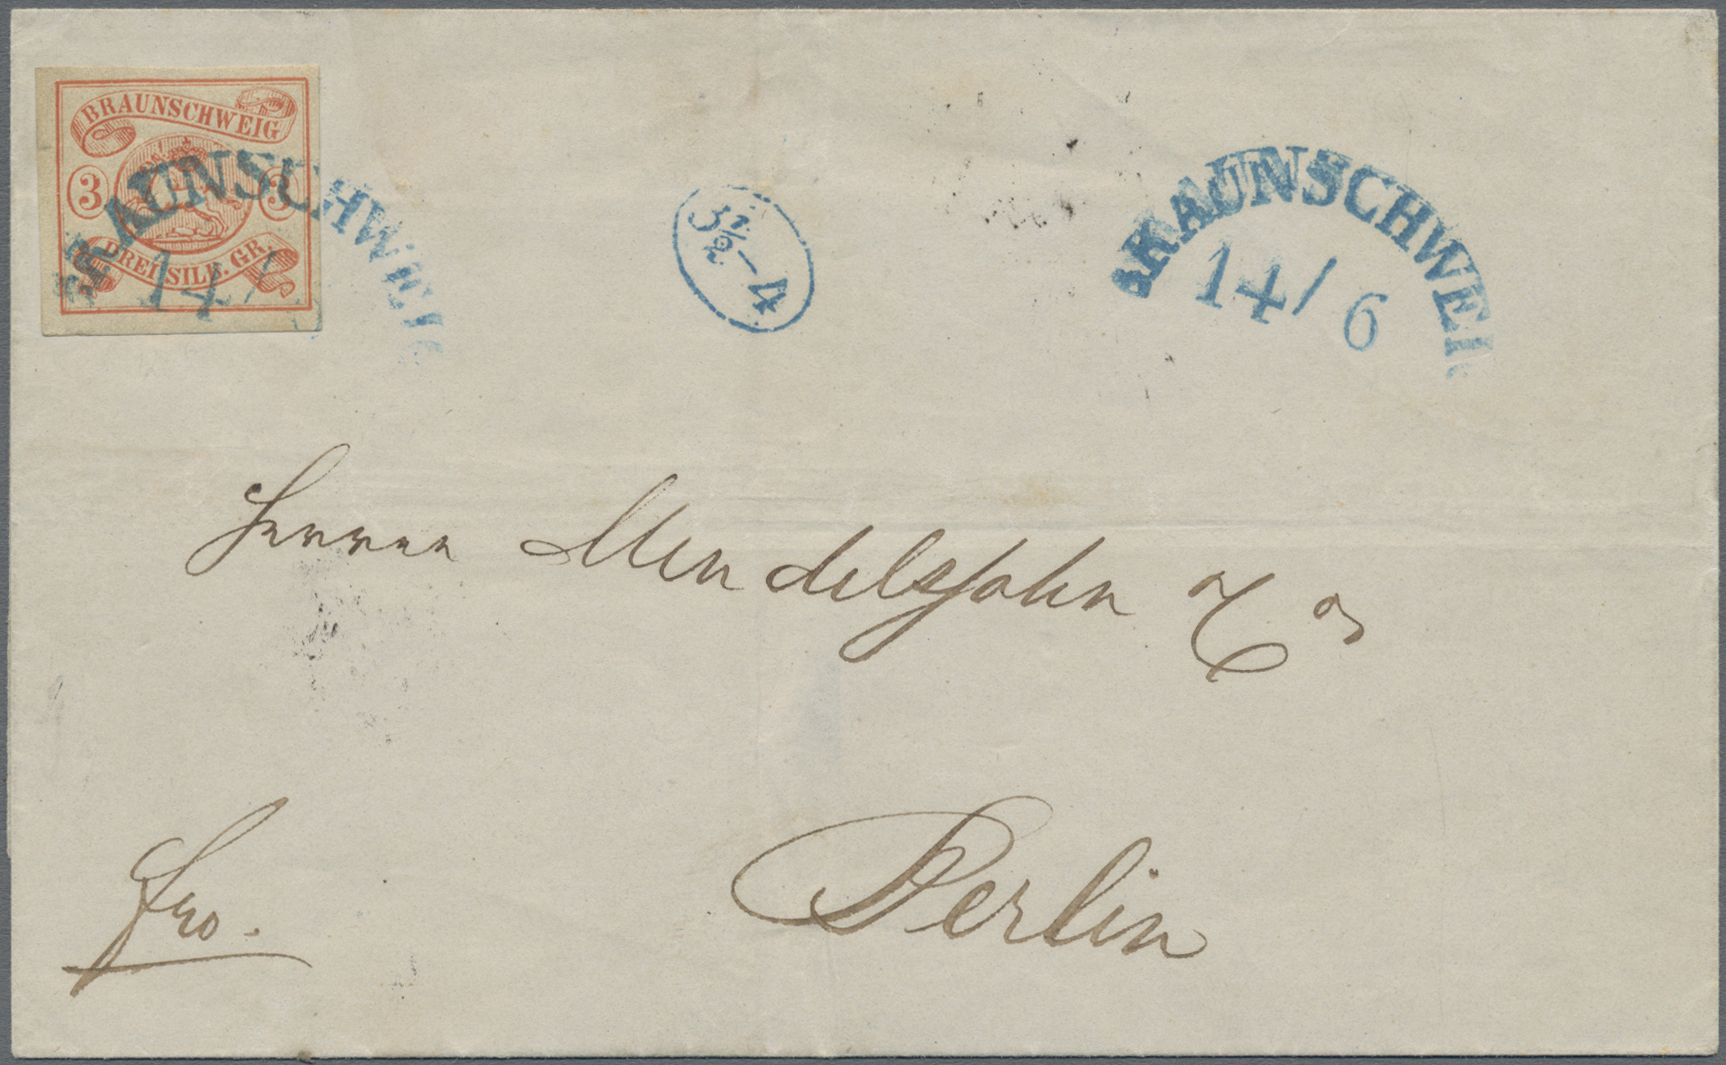 BRAUNSCHWEIG
3 3
DREI SILB. GR.
BRAUNSCHWEIG
14/
3½-4
BRAUNSCHWEI
14/6
Herren Mendelssohn & Co
Berlin
fro.